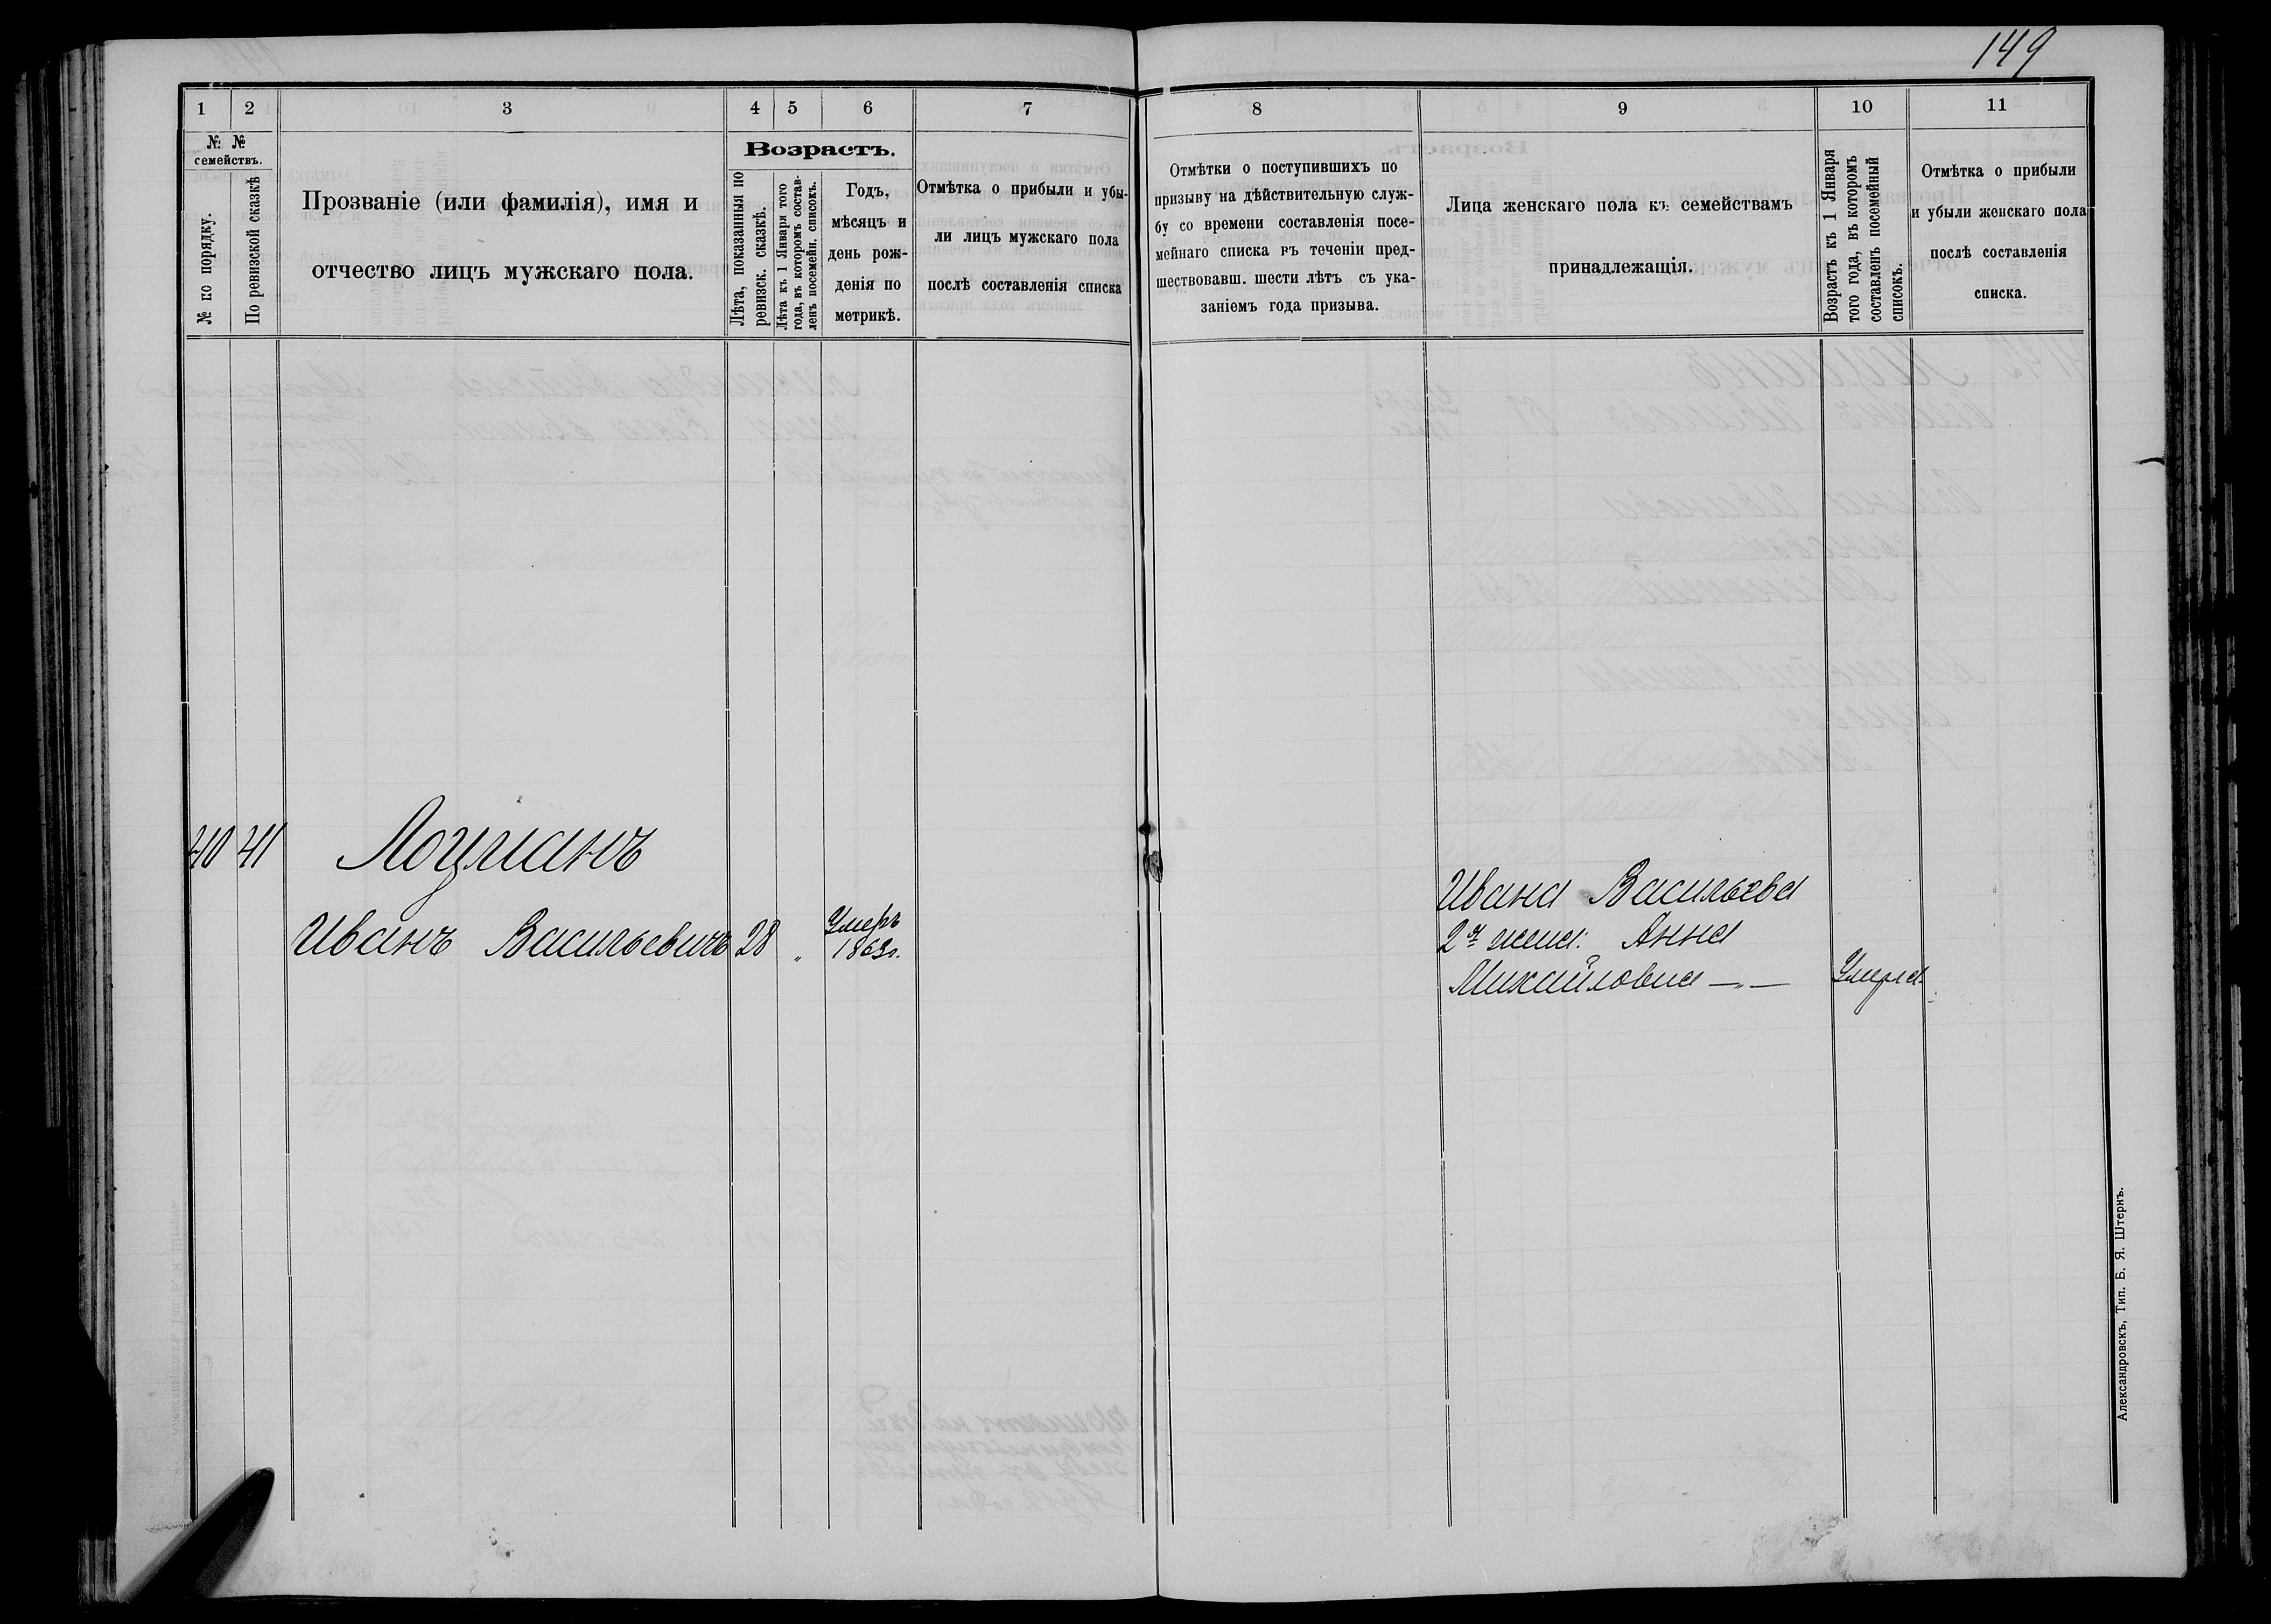 149
1 2 3 4 5 6 7
№ № семействъ.
№ по порядку.
По ревизской сказкѣ
Прозваніе (или фамилія), имя и
отчество лицъ мужскаго пола.
Возрастъ.
Лѣта, показанныя по
ревизск. сказкѣ.
Лѣта къ 1 Января того
года, въ которомъ состав-
ленъ посемейн. списокъ.
Годъ,
мѣсяцъ и
день рож-
денія по
метрикѣ.
Отмѣтка о прибыли и убы-
ли лицъ мужскаго пола
послѣ составленія списка
8 9 10 11
Отмѣтки о поступившихъ по
призыву на дѣйствительную служ-
бу со времени составленія посе-
мейнаго списка въ теченіи пред-
шествовавш. шести лѣтъ съ ука-
заніемъ года призыва.
Лица женскаго пола къ семействамъ
принадлежащія.
Возрастъ къ 1 Января
того года, въ которомъ
составленъ посемейный
списокъ.
Отмѣтка о прибыли
и убыли женскаго пола
послѣ составленія
списка.
40 41 Лоцманъ
Иванъ Васильевичъ 28 „ Умеръ
1863г.
Ивана Васильева
2я жена: Анна
Михайловна —„— Умерла.
Александровскъ, Тип. Б. Я. Штернъ.